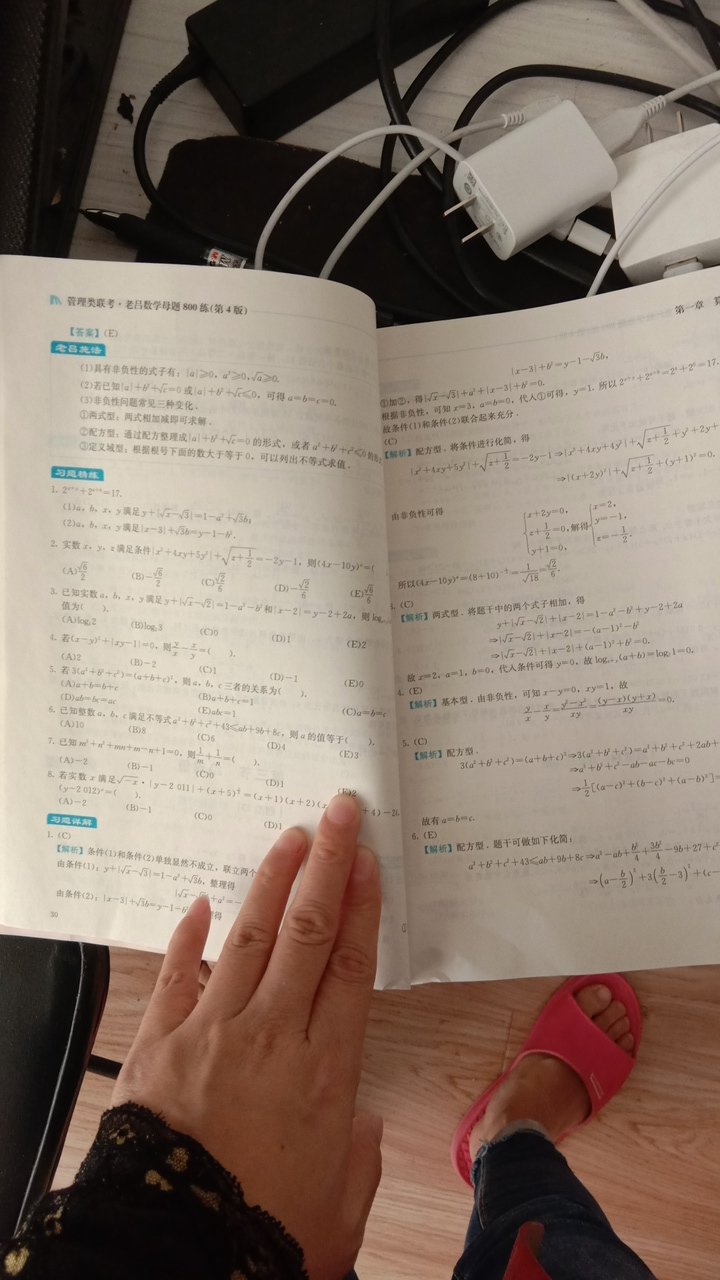 管理类联考·老吕数学母题800练(第4版)
【答案】(E)
老吕施法
(1)具有非负性的式子有：|a|≥0，a²≥0，√a≥0.
(2)若已知|a|+b²+√c=0或|a|+b²+√c≤0，可得a=b=c=0.
(3)非负性问题常见三种变化.
①两式型：两式相加减即可求解.
②配方型：通过配方整理成|a|+b²+√c=0的形式，或者a²+b²+c²≤0的形
③定义域型：根据根号下面的数大于等于0，可以列出不等式求值.
习题精练
(1)a，b，x，y满足y+|√x-√3|=1-a²+√3b；
(2)a，b，x，y满足|x-3|+√3b=y-1-b².
2. 实数x，y，z满足条件|x²+4xy+5y²|+√(z+1/2)=-2y-1，则(4x-10y)ᶻ=(
(A)√6/2 (B)-√6/2 (C)√2/6 (D)-√2/6 (E)√6/6
3. 已知实数a，b，x，y满足y+|√x-√2|=1-a²-b²和|x-2|=y-2+2a，则log
值为( ).
(A)log₃2 (B)log₂3 (C)0 (D)1 (E)2
4. 若(x-y)²+|xy-1|=0，则y/x-x/y=( ).
(A)2 (B)-2 (C)1 (D)-1 (E)0
5. 若3(a²+b²+c²)=(a+b+c)²，则a，b，c三者的关系为( ).
(A)a+b=b+c (B)a+b+c=1 (C)a=b=c
(D)ab=bc=ac (E)abc=1
6. 已知整数a，b，c满足不等式a²+b²+c²+43≤ab+9b+8c，则a的值等于( ).
(A)10 (B)8 (C)6 (D)4 (E)3
7. 已知m²+n²+mn+m-n+1=0，则1/m+1/n=( ).
(A)-2 (B)-1 (C)0 (D)1 (E)2
8. 若实数x满足√-x·|y-2 011|+(x+5)
=(x+1)(x+2)(x +4)-2
(y-2 012)ˣ=( ).
(A)-2 (B)-1 (C)0 (D)1
习题详解
1. (C)
【解析】条件(1)和条件(2)单独显然不成立，联立两个
由条件(1)：y+|√x-√3|=1-a²+√3b，整理得
由条件(2)：|x-3|+√3b=y-1-b² 理得
30
第一章
|x-3|+b²=y-1-√3b，
①加②，得|√x-√3|+a²+|x-3|+b²=0.
根据非负性，可知x=3，a=b=0，代入①可得，y=1. 所以
故条件(1)和条件(2)联合起来充分.
(C)
【解析】配方型. 将条件进行化简，得
|x²+4xy+5y²|+√(z+1/2)=-2y-1⇒|x²+4xy+4y²|+√(z+1/2)+y²+2y+
⇒|(x+2y)²|+√(z+1/2)+(y+1)²=0.
由非负性可得
{x+2y=0，z+1/2=0，y+1=0，解得{x=2，y=-1，z=-1/2.
所以(4x-10y)ᶻ=(8+10)^(-1/2)=1/√18=√2/6.
(C)
【解析】两式型. 将题干中的两个式子相加，得
y+|√x-√2|+|x-2|=1-a²-b²+y-2+2a
⇒|√x-√2|+|x-2|=-(a-1)²-b²
⇒|√x-√2|+|x-2|+(a-1)²+b²=0.
故x=2，a=1，b=0，代入条件可得y=0，故
4. (E)
【解析】基本型. 由非负性，可知x-y=0，xy=1，故
y/x-x/y=(y²-x²)/xy=(y-x)(y+x)/xy=0.
5. (C)
【解析】配方型.
3(a²+b²+c²)=(a+b+c)²⇒3(a²+b²+c²)=a²+b²+c²+2ab+
⇒a²+b²+c²-ab-ac-bc=0
⇒1/2[(a-c)²+(b-c)²+(a-b)²]=
故有a=b=c.
6. (E)
【解析】配方型. 题干可做如下化简：
a²+b²+c²+43≤ab+9b+8c⇒a²-ab+b²/4+3b²/4-9b+27+c²
⇒(a-b/2)²+3(b/2-3)²+(c-